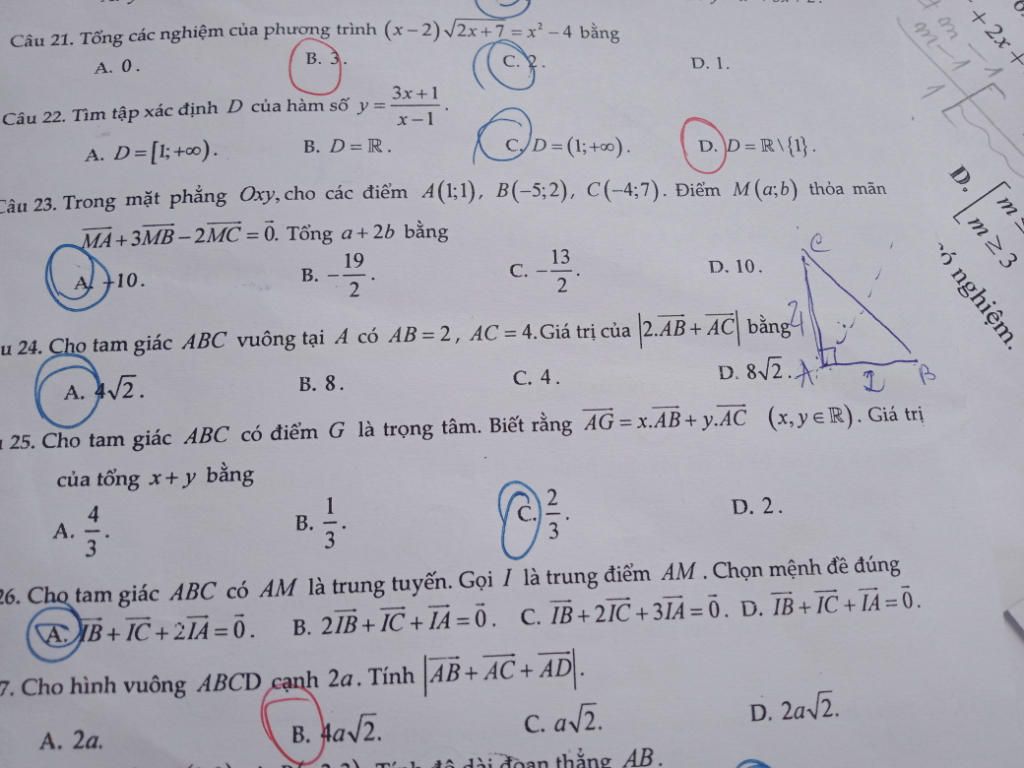 Câu 21. Tổng các nghiệm của phương trình (x−2)√(2x+7) = x² − 4 bằng
A. 0. B. 3. C. 2. D. 1.
Câu 22. Tìm tập xác định D của hàm số y = (3x+1)/(x−1).
A. D = [1; +∞). B. D = ℝ. C. D = (1; +∞). D. D = ℝ \ {1}.
Câu 23. Trong mặt phẳng Oxy, cho các điểm A(1;1), B(−5;2), C(−4;7). Điểm M(a;b) thỏa mãn
MA⃗ + 3MB⃗ − 2MC⃗ = 0⃗. Tổng a + 2b bằng
A. −10. B. −19/2. C. −13/2. D. 10.
u 24. Cho tam giác ABC vuông tại A có AB = 2, AC = 4. Giá trị của |2.AB⃗ + AC⃗| bằng
A. 4√2. B. 8. C. 4. D. 8√2.
C
4
A
2
B
25. Cho tam giác ABC có điểm G là trọng tâm. Biết rằng AG⃗ = x.AB⃗ + y.AC⃗ (x, y ∈ ℝ). Giá trị
của tổng x + y bằng
A. 4/3. B. 1/3. C. 2/3. D. 2.
26. Cho tam giác ABC có AM là trung tuyến. Gọi I là trung điểm AM. Chọn mệnh đề đúng
A. IB⃗ + IC⃗ + 2IA⃗ = 0⃗. B. 2IB⃗ + IC⃗ + IA⃗ = 0⃗. C. IB⃗ + 2IC⃗ + 3IA⃗ = 0⃗. D. IB⃗ + IC⃗ + IA⃗ = 0⃗.
7. Cho hình vuông ABCD cạnh 2a. Tính |AB⃗ + AC⃗ + AD⃗|.
A. 2a. B. 4a√2. C. a√2. D. 2a√2.
độ dài đoạn thẳng AB.
+ 2x +
m − 1
m − 1
D. [ m ≥
m ≥ 3
có nghiệm.